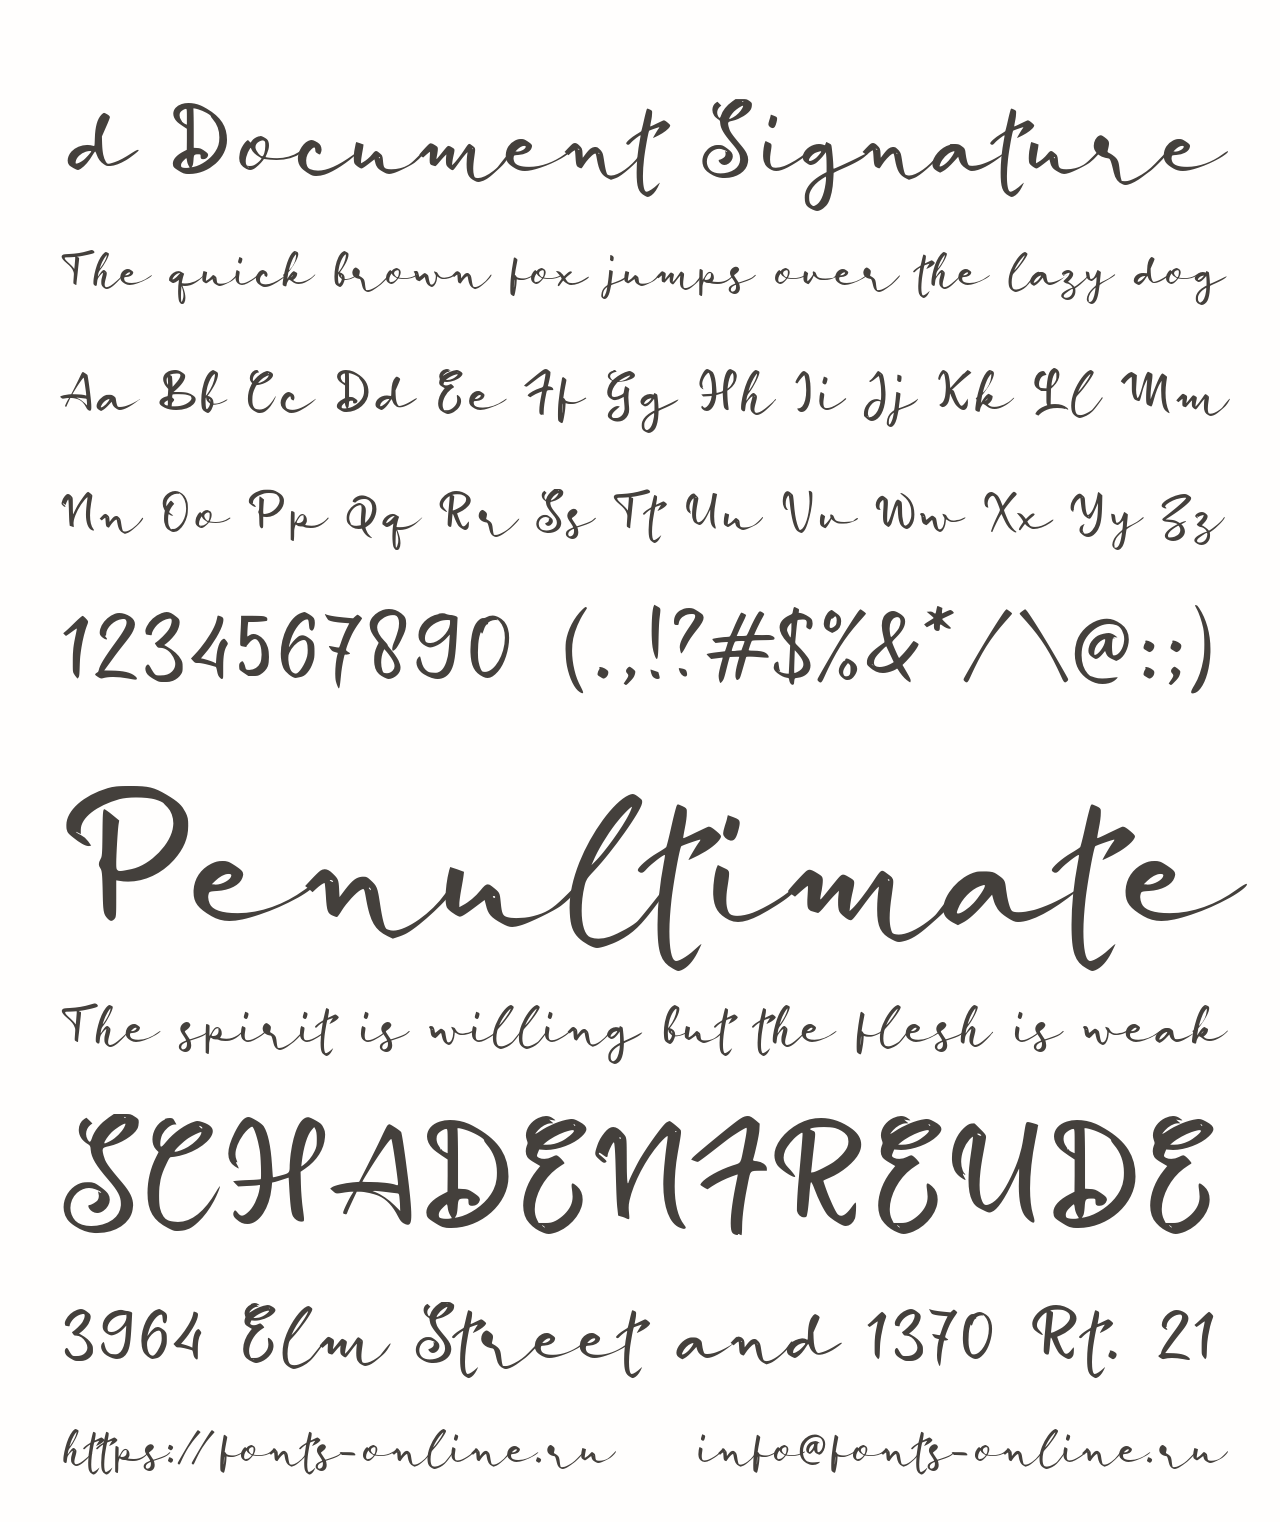 d Document Signature
The quick brown fox jumps over the lazy dog
Aa Bb Cc Dd Ee Ff Gg Hh Ii Jj Kk Ll Mm
Nn Oo Pp Qq Rr Ss Tt Uu Vv Ww Xx Yy Zz
1234567890 (.,!?#$%&*/\@:;)
Penultimate
The spirit is willing but the flesh is weak
SCHADENFREUDE
3964 Elm Street and 1370 Rt. 21
https://fonts-online.ru info@fonts-online.ru